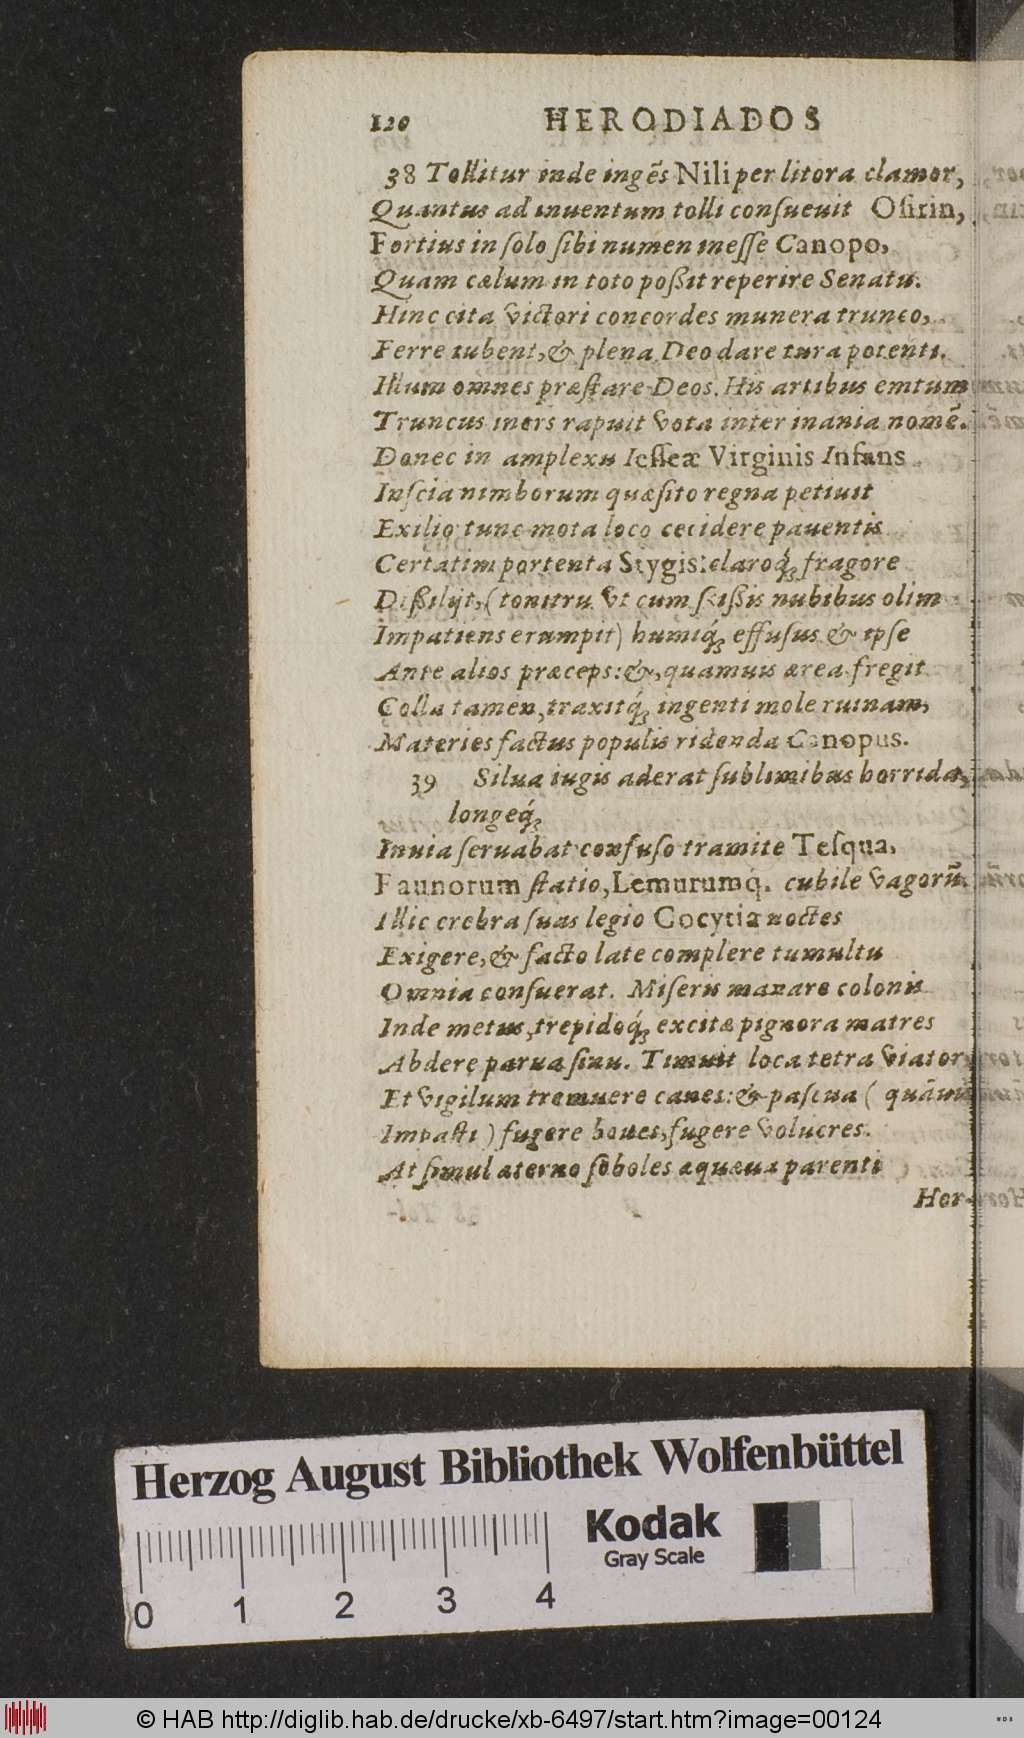 120 HERODIADOS
38 Tollitur inde ingẽs Nili per litora clamor,
Quantus ad inuentum tolli conſueuit Oſirin,
Fortius in ſolo ſibi numen ineſſe Canopo,
Quam cælum in toto poßit reperire Senatu.
Hinc cita victori concordes munera trunco,
Ferre iubent, & plena Deo dare tura potenti.
Illum omnes præſtare Deos. His artibus emtum
Truncus iners rapuit vota inter inania nomẽ.
Donec in amplexu Ieſſeæ Virginis Infans
Inſcia nimborum quæſito regna petiuit
Exilio: tunc mota loco cecidere pauentis
Certatim portenta Stygis: claroq́; fragore
Dißilijt, (tonitru vt cum ſcißis nubibus olim
Impatiens erumpit) humiq́; effuſus & ipſe
Ante alios præceps: &, quamuis ærea fregit
Colla tamen, traxitq́; ingenti mole ruinam,
Materies factus populis ridenda Canopus.
39 Silua iugis aderat ſublimibus horrida,
longeq́;
Inuia ſeruabat confuſo tramite Teſqua,
Faunorum ſtatio, Lemurumq́. cubile vagorũ.
Illic crebra ſuas legio Cocytia noctes
Exigere, & facto late complere tumultu
Omnia conſuerat. Miſeris manare colonis
Inde metus, trepidoq́; excitæ pignora matres
Abdere parua ſinu. Timuit loca tetra viator
Et vigilum tremuere canes: & paſcua ( quãuis
Impaſti ) fugere boues, fugere volucres.
At ſimul æterno ſoboles æquæua parenti
Her-
Herzog August Bibliothek Wolfenbüttel
Kodak
Gray Scale
0 1 2 3 4
© HAB http://diglib.hab.de/drucke/xb-6497/start.htm?image=00124